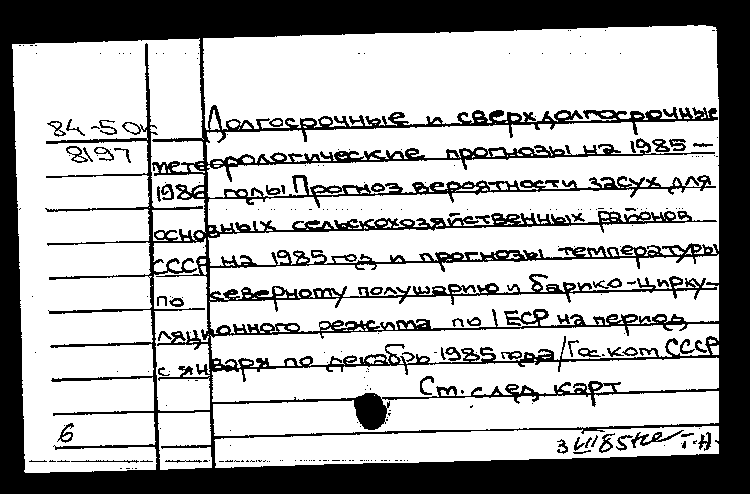 84-5
Долгосрочные и сверхдолгосрочные
8197
метеорологические прогнозы на 1985 –
1986 годы. Прогноз вероятности засух для
основных сельскохозяйственных районов
СССР на 1985 год и прогнозы температуры
по северному полушарию и барико-цирку-
ляционного режима по I ЕСР на период
с января по декабрь 1985 года/Гос. ком. СССР
См. след. карт
6
3 VIII 85 Т.Н.